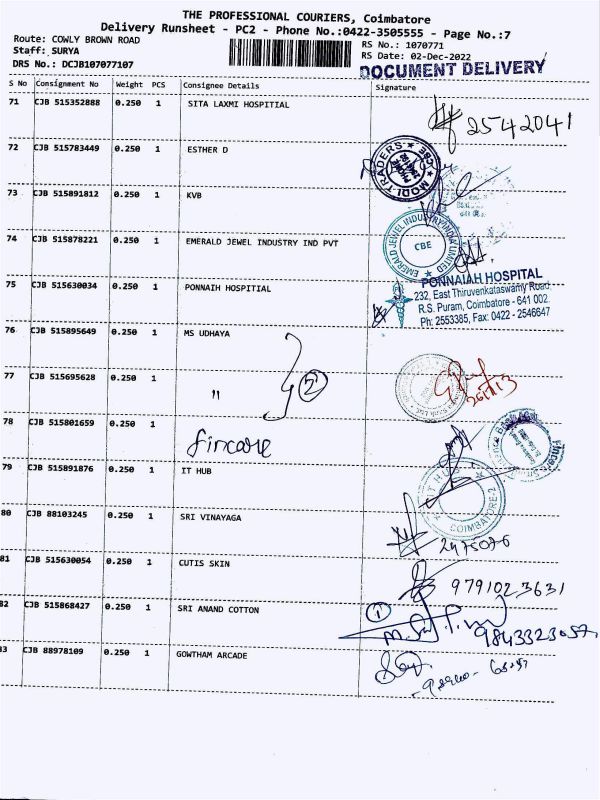 THE PROFESSIONAL COURIERS, Coimbatore
Delivery Runsheet - PC2 - Phone No.:0422-3505555 - Page No.:7
Route: COWLY BROWN ROAD
Staff: SURYA
DRS No.: DCJB107077107
RS No.: 1070771
RS Date: 02-Dec-2022
DOCUMENT DELIVERY
S No Consignment No Weight PCS Consignee Details Signature
71 CJB 515352888 0.250 1 SITA LAXMI HOSPITIAL 2542041
72 CJB 515783449 0.250 1 ESTHER D
MODI TRADERS ★ CBE ★
73 CJB 515891812 0.250 1 KVB
74 CJB 515878221 0.250 1 EMERALD JEWEL INDUSTRY IND PVT
EMERALD JEWEL INDUSTRY INDIA LIMITED ★ CBE
75 CJB 515630034 0.250 1 PONNAIH HOSPITIAL
PONNAIAH HOSPITAL
232, East Thiruvenkataswamy Road
R.S. Puram, Coimbatore - 641 002
Ph: 2553385, Fax: 0422 - 2546647
76 CJB 515895649 0.250 1 MS UDHAYA
2
77 CJB 515695628 0.250 1 "
78 CJB 515801659 0.250 1 fincare
79 CJB 515891876 0.250 1 IT HUB
IT HUB
COIMBATORE-2
80 CJB 88103245 0.250 1 SRI VINAYAGA
2475076
81 CJB 515630054 0.250 1 CUTIS SKIN 9791023631
82 CJB 515868427 0.250 1 SRI ANAND COTTON 1
9843323057
83 CJB 88978109 0.250 1 GOWTHAM ARCADE